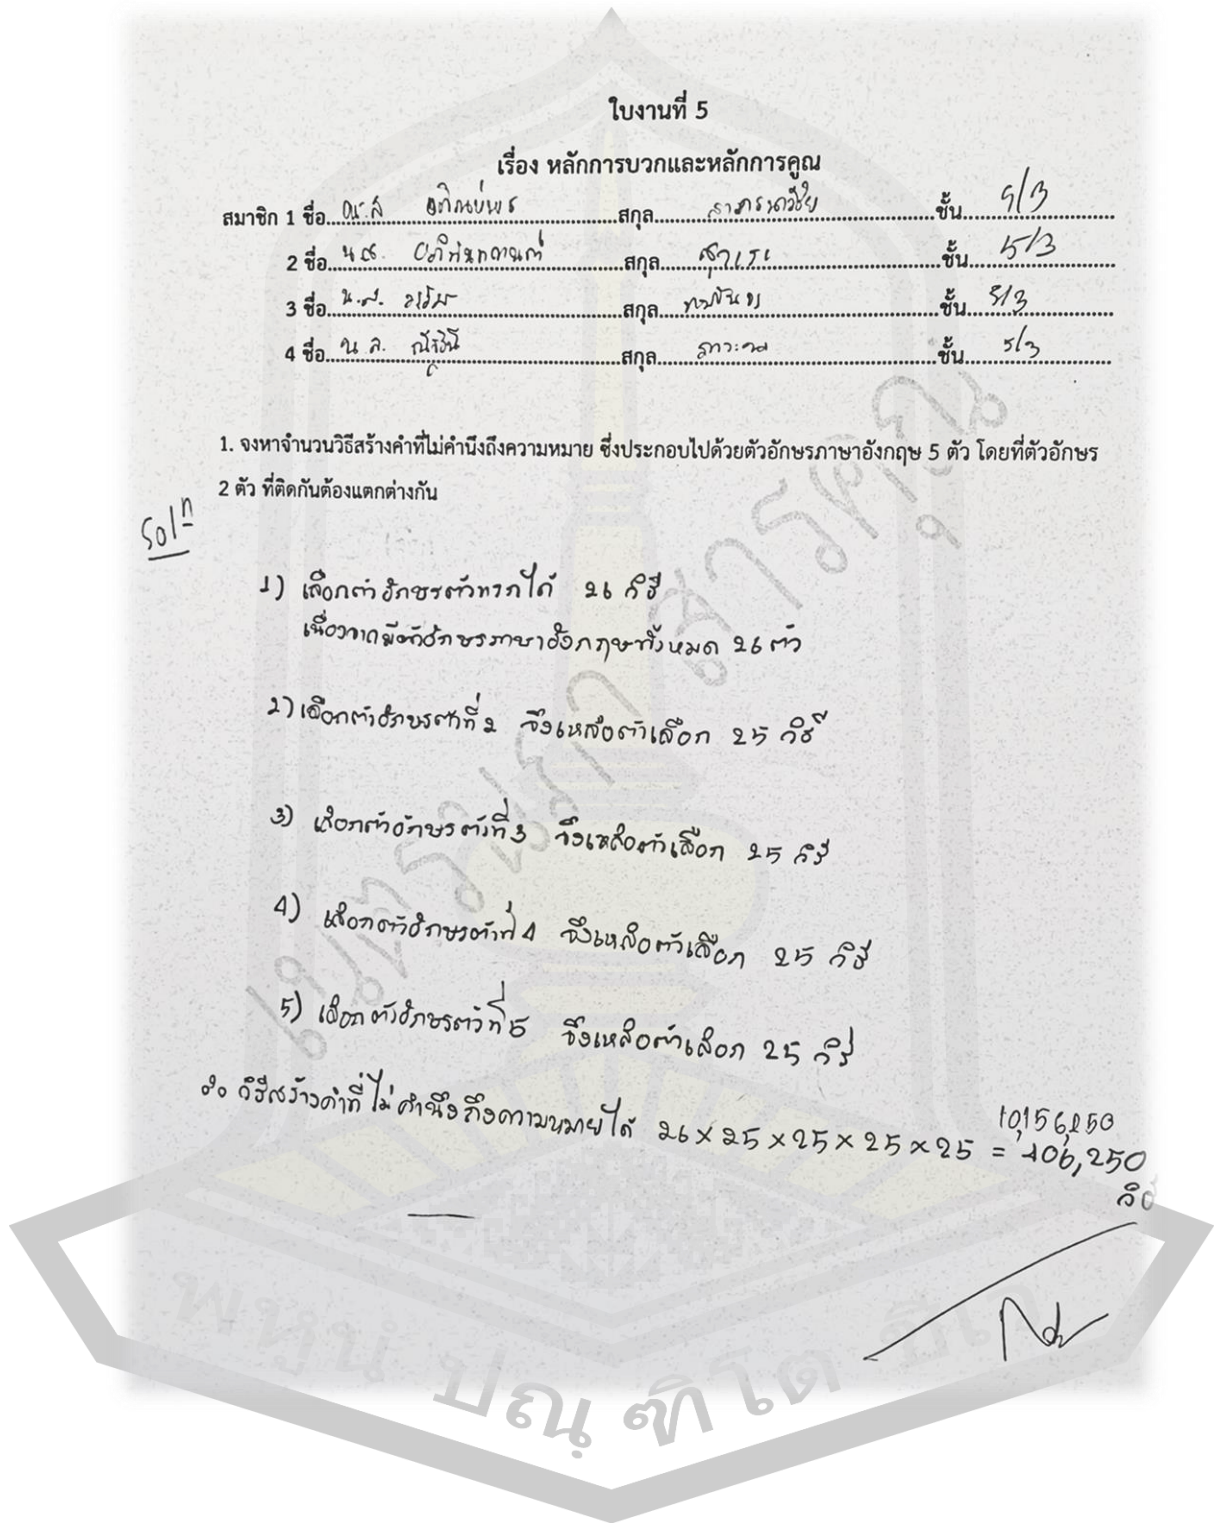 ใบงานที่ 5
เรื่อง หลักการบวกและหลักการคูณ
สมาชิก 1 ชื่อ น.ส สกุล ชั้น 5/3
2 ชื่อ น.ส. สกุล ชั้น 5/3
3 ชื่อ น.ส. สกุล ชั้น 5/3
4 ชื่อ น.ส. สกุล ชั้น 5/3
1. จงหาจำนวนวิธีสร้างคำที่ไม่คำนึงถึงความหมาย ซึ่งประกอบไปด้วยตัวอักษรภาษาอังกฤษ 5 ตัว โดยที่ตัวอักษร
2 ตัว ที่ติดกันต้องแตกต่างกัน
Solⁿ
1) เลือกตัวอักษรตัวแรกได้ 26 วิธี
เนื่องจากมีตัวอักษรภาษาอังกฤษทั้งหมด 26 ตัว
2) เลือกตัวอักษรตัวที่ 2 จึงเหลือตัวเลือก 25 วิธี
3) เลือกตัวอักษรตัวที่ 3 จึงเหลือตัวเลือก 25 วิธี
4) เลือกตัวอักษรตัวที่ 4 จึงเหลือตัวเลือก 25 วิธี
5) เลือกตัวอักษรตัวที่ 5 จึงเหลือตัวเลือก 25 วิธี
10,156,250
∴ วิธีสร้างคำที่ไม่คำนึงถึงความหมายได้ 26 × 25 × 25 × 25 × 25 = 406,250
วิธี
มหาวิทยาลัยราชภัฏมหาสารคาม
พหูนํ ปณฺฑิโต ชีเว